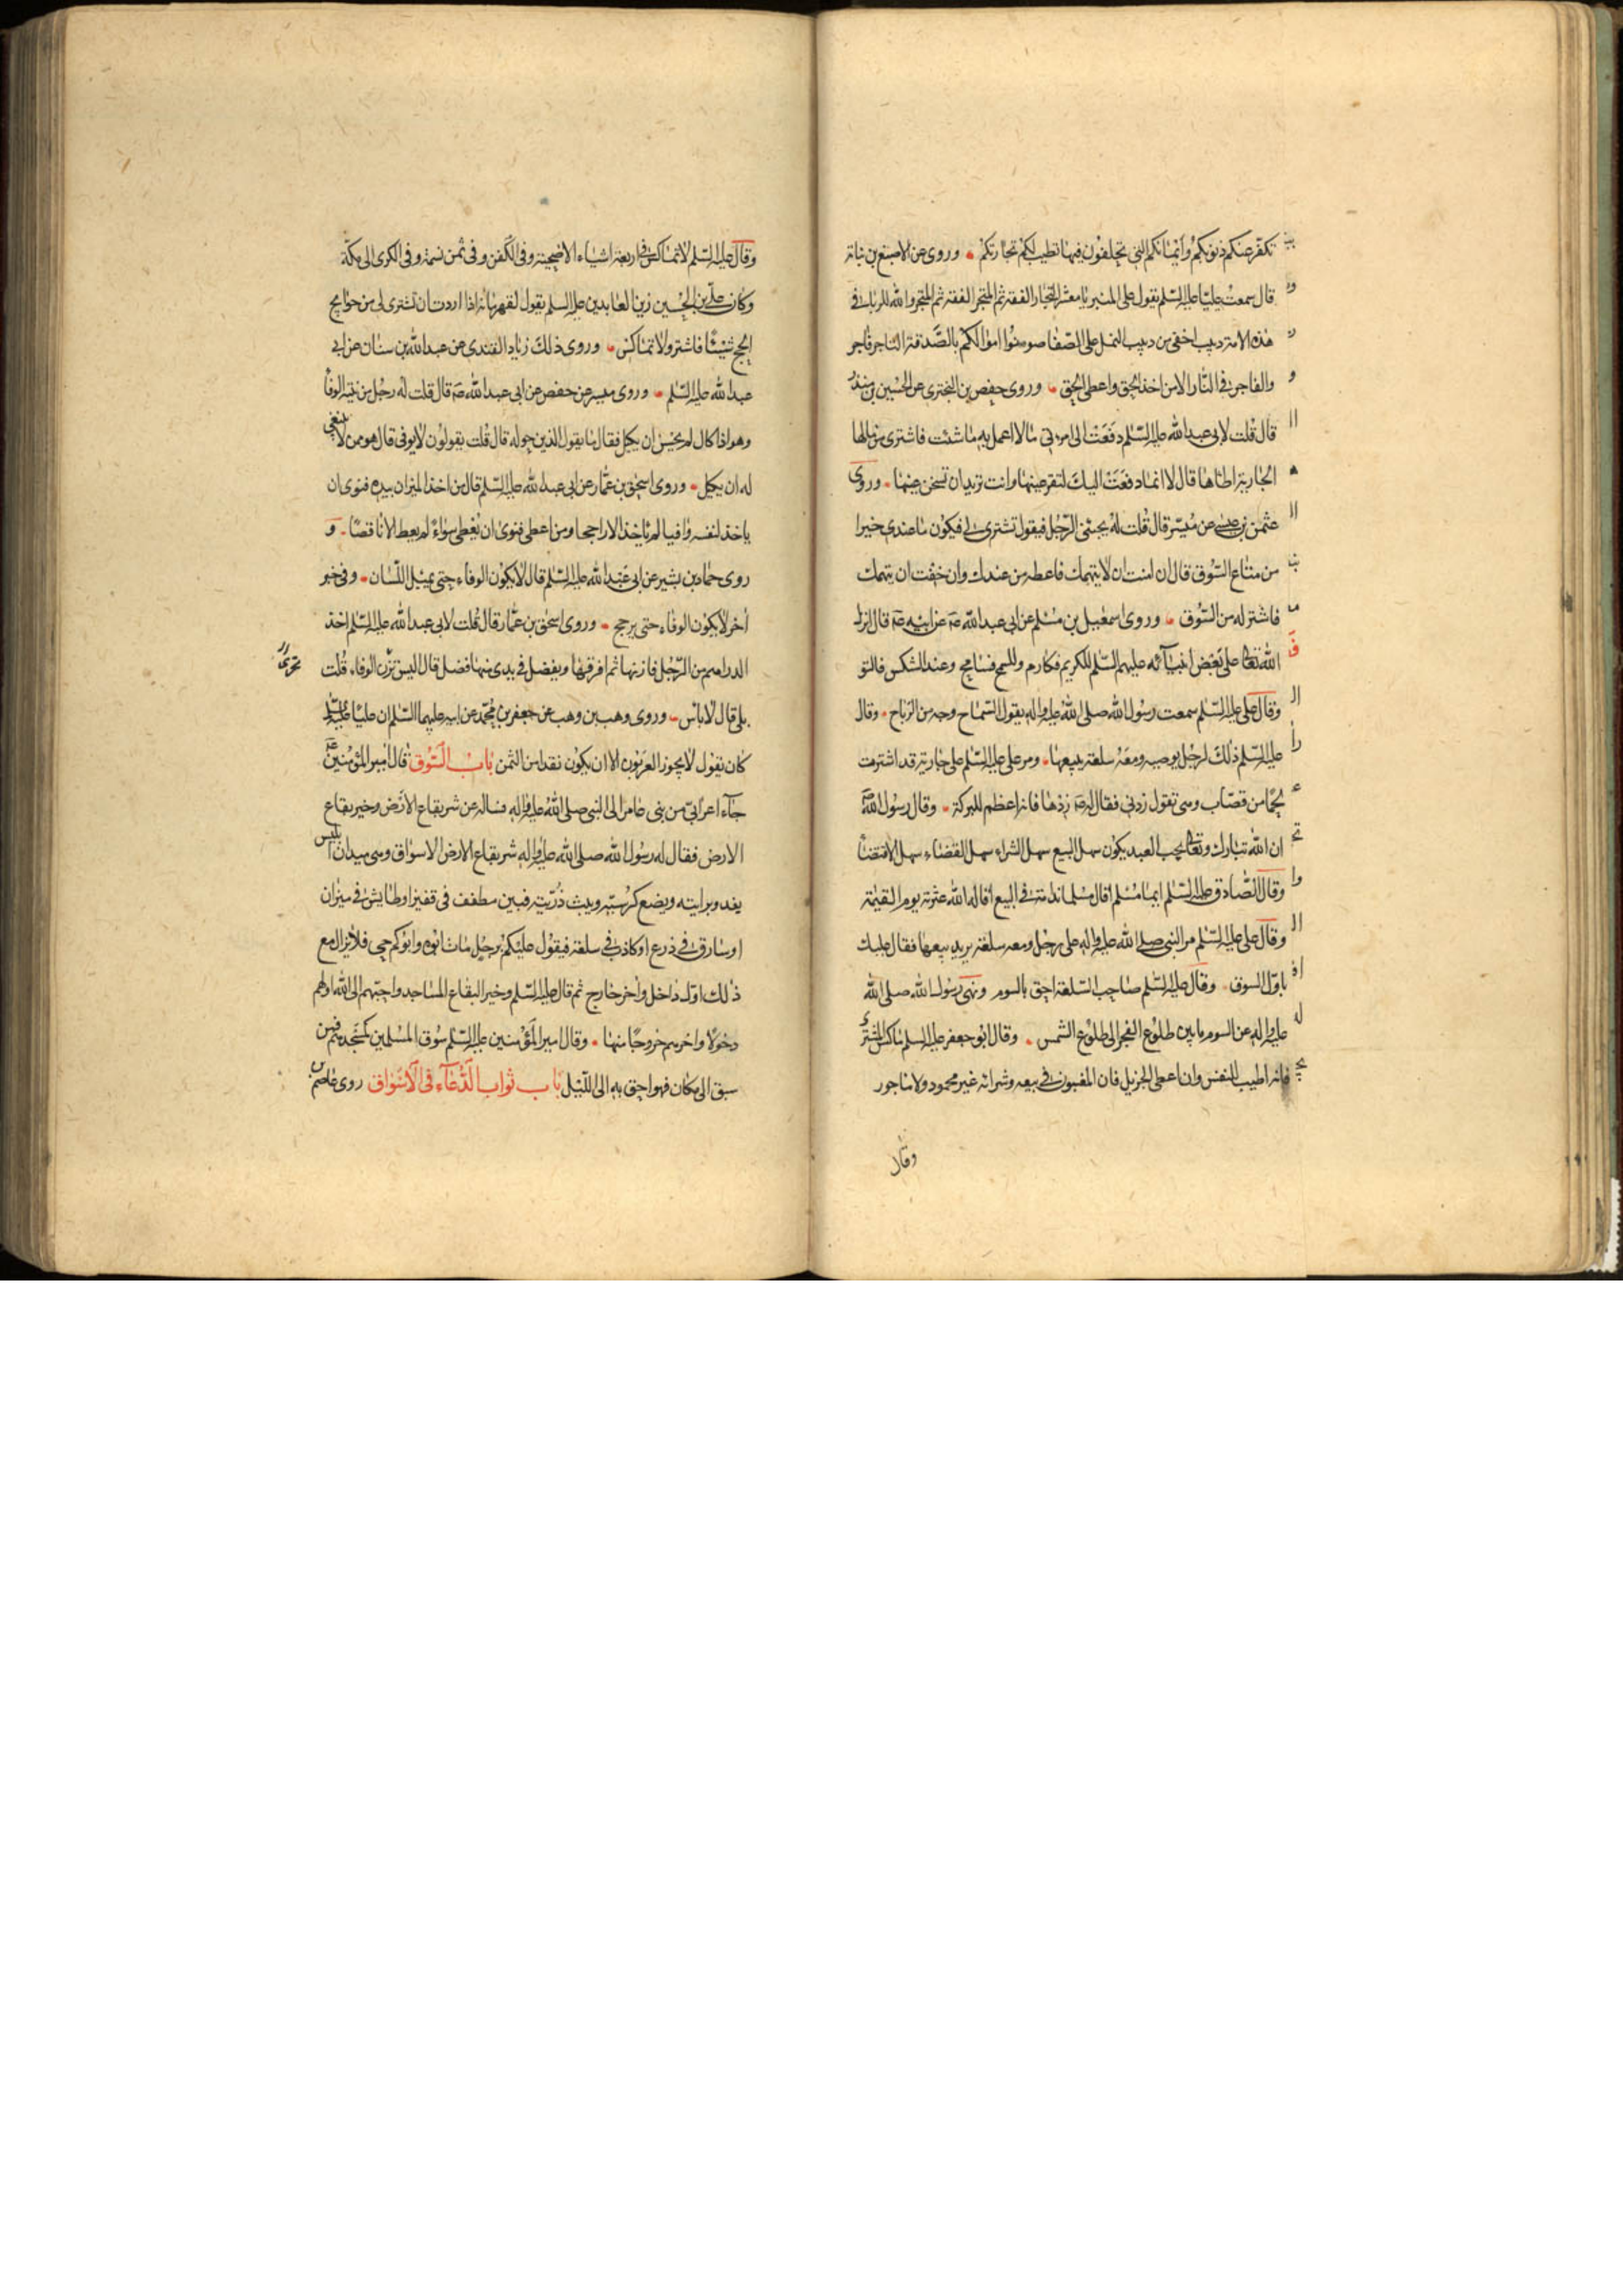 تكفر عنكم ذنوبكم وايمانكم التي تحلفون فيها تطيب لكم تجارتكم وروى عن الاصبغ بن نباته
قال سمعت عليا عليه السلم يقول على المنبر يا معشر التجار الفقه ثم المتجر الفقه ثم المتجر والله للربا في
هذه الامة دبيب اخفى من دبيب النمل على الصفا صونوا اموالكم بالصدقة التاجر فاجر
والفاجر في النار الا من اخذ الحق واعطى الحق وروى حفص بن البخترى عن الحسين بن منذر
قال قلت لابى عبد الله عليه السلم دفعت الى امرءتى مالا اعمل به ما شئت فاشترى من مالها
الجارية اطاها قال لا انما دفعت اليك لتقر عينها وانت تريد ان تسخن عينها وروى
عثمن بن عيسى عن ميسر قال قلت له يجيئنى الرجل فيقول تشترى لى فيكون ما عندى خيرا
من متاع السوق قال ان امنت ان لا يتهمك فاعطه من عندك وان خفت ان يتهمك
فاشتر له من السوق وروى اسمعيل بن مسلم عن ابى عبد الله عن ابيه قال انزل
الله تعالى على بعض انبيائه عليهم السلم للكريم فكارم وللسمح فسامح وعند الشكس فالتو
وقال على عليه السلم سمعت رسول الله صلى الله عليه واله يقول السماح وجه من الرباح وقال
عليه السلم ذلك لرجل يوصيه ومعه سلعة يبيعها ومر على عليه السلم على جارية قد اشترت
لحما من قصاب وهى تقول زدنى فقال له زدها فانه اعظم للبركة وقال رسول الله
ان الله تبارك وتعالى يحب العبد يكون سهل البيع سهل الشراء سهل القضاء سهل الاقتضا
وقال الصادق عليه السلم ايما مسلم اقال مسلما ندامة في البيع اقاله الله عثرته يوم القيمة
وقال على عليه السلم مر النبى صلى الله عليه واله على رجل ومعه سلعة يريد بيعها فقال عليك
باول السوق وقال عليه السلم صاحب السلعة احق بالسوم ونهى رسول الله صلى الله
عليه واله عن السوم ما بين طلوع الفجر الى طلوع الشمس وقال ابو جعفر عليه السلم ماكس المشترى
فانه اطيب للنفس وان اعطى الجزيل فان المغبون في بيعه وشرائه غير محمود ولا ماجور
وقال
وقال عليه السلم لا تماكس في اربعة اشياء الاضحية وفى الكفن وفى ثمن نسمة وفى الكرى الى مكة
وكان على بن الحسين زين العابدين عليه السلم يقول لقهرمانه اذا اردت ان تشترى لى من حوايج
الحج شيئا فاشتر ولا تماكس وروى ذلك زياد القندى عن عبد الله بن سنان عن ابى
عبد الله عليه السلم وروى ميسر عن حفص عن ابى عبد الله قال قلت له رجل من نيته الوفا
وهو اذا كال لم يحسن ان يكيل فقال ما يقول الذين حوله قال قلت يقولون لا يوفى قال هو ممن لا ينبغى
له ان يكيل وروى اسحق بن عمار عن ابى عبد الله عليه السلم قال من اخذ الميزان بيده فنوى ان
ياخذ لنفسه وافيا لم ياخذ الا راجحا ومن اعطى فنوى ان يعطى سواء لم يعط الا ناقصا و
روى حماد بن بشير عن ابى عبد الله عليه السلم قال لا يكون الوفاء حتى يميل اللسان وفى خبر
اخر لا يكون الوفاء حتى يرجح وروى اسحق بن عمار قال قلت لابى عبد الله عليه السلم اخذ
الدراهم من الرجل فازنها ثم افرقها ويفضل في يدى منها فضل قال اليس تزن الوفاء قلت
بلى قال لا باس وروى وهب بن وهب عن جعفر بن محمد عن ابيه عليهما السلم ان عليا عليه السلم
كان يقول لا يجوز العربون الا ان يكون نقدا من الثمن باب السوق قال امير المؤمنين
جاء اعرابى من بنى عامر الى النبى صلى الله عليه واله فساله عن شر بقاع الارض وخير بقاع
الارض فقال له رسول الله صلى الله عليه واله شر بقاع الارض الاسواق وهى ميدان ابليس
يغدو برايته ويضع كرسيه ويبث ذريته فبين مطفف في قفيز او طايش في ميزان
او سارق في ذرع او كاذب في سلعة فيقول عليكم برجل مات ابوه وابوكم حى فلا يزال مع
ذلك اول داخل واخر خارج ثم قال عليه السلم وخير البقاع المساجد واحبهم الى الله اولهم
دخولا واخرهم خروجا منها وقال امير المؤمنين عليه السلم سوق المسلمين كمسجدهم فمن
سبق الى مكان فهو احق به الى الليل باب ثواب الدعاء في الاسواق روى عاصم بن